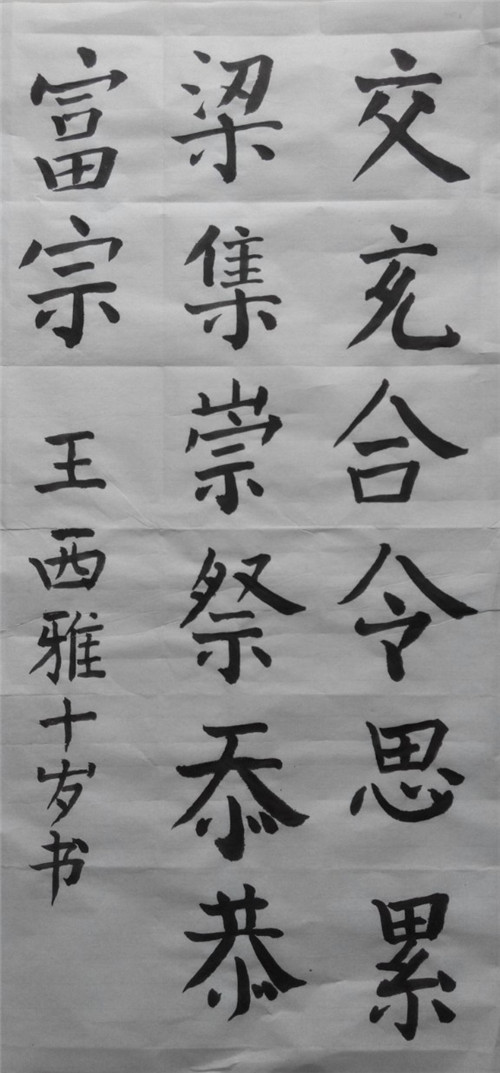 交充合令思累
梁集崇祭忝恭
富宗
王西雅十岁书